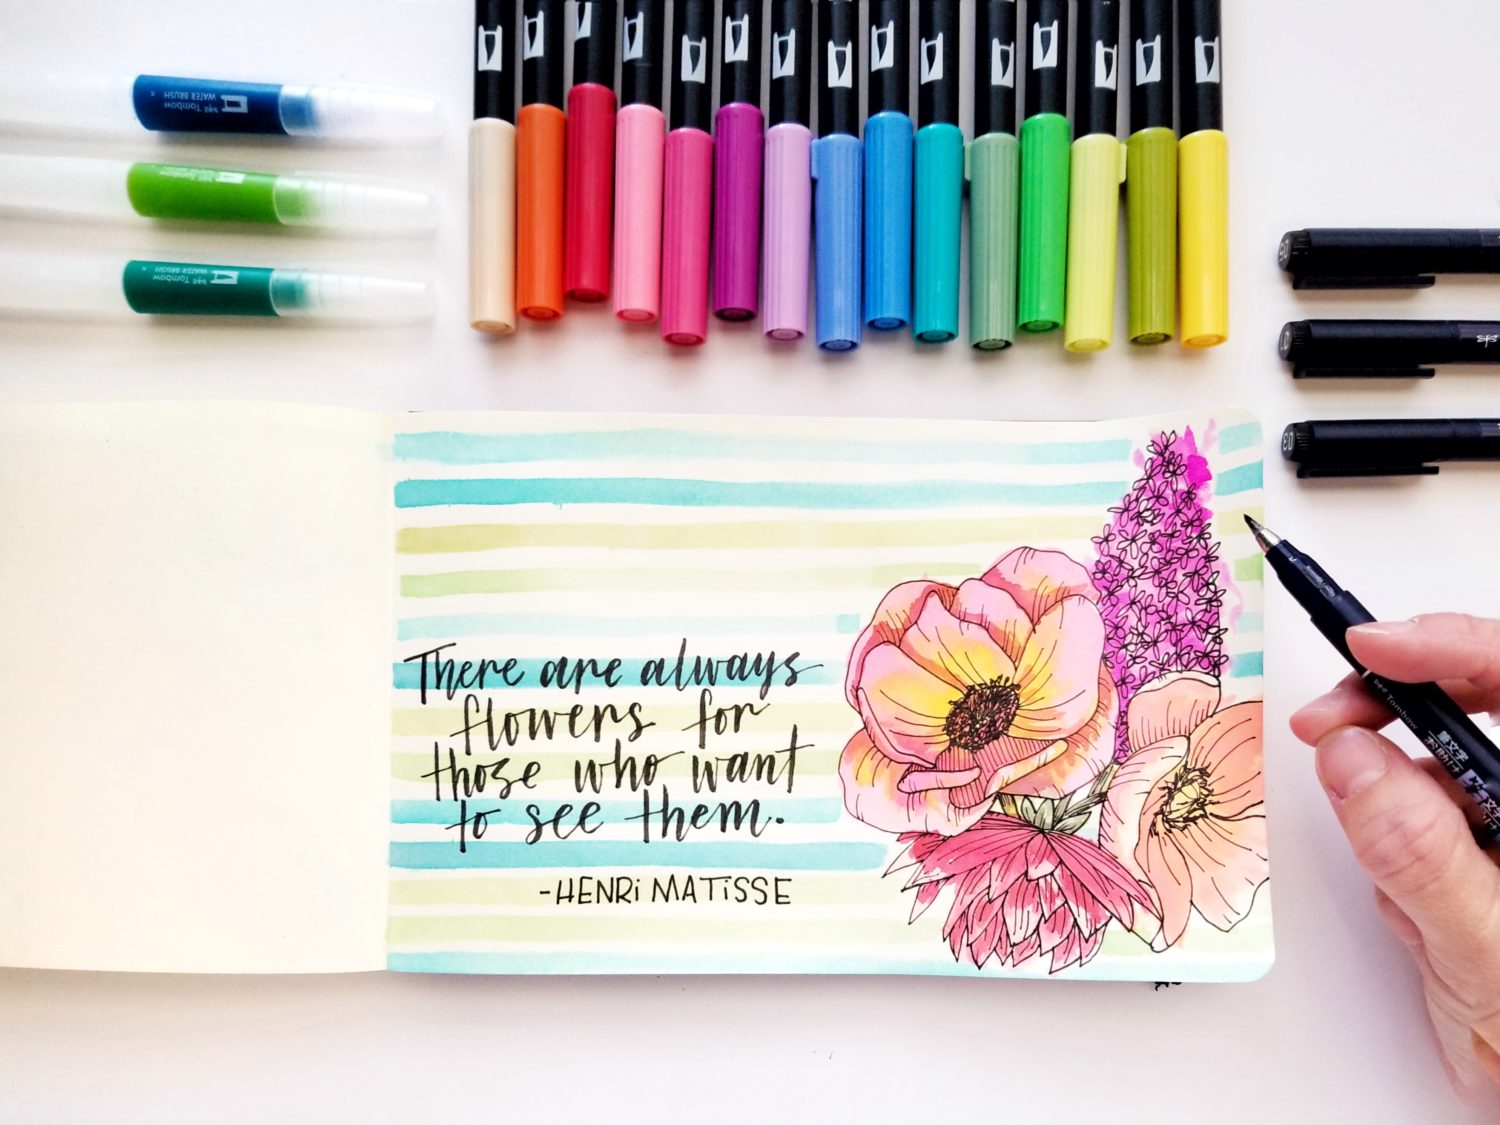 Tombow
WATER BRUSH
Tombow
WATER BRUSH
Tombow
WATER BRUSH
There are always
flowers for
those who want
to see them.
-HENRi MATiSSE
03
Tombow
筆文字